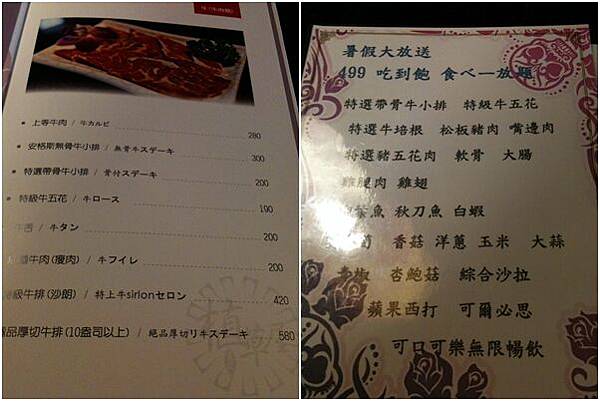 上等牛肉 / 牛カルビ 280
安格斯無骨牛小排 / 無骨牛ステーキ 300
特選帶骨牛小排 / 骨付ステーキ 200
特級牛五花 / 牛ロース 190
牛舌 / 牛タン 200
牛肉(瘦肉) / 牛フイレ 200
特級牛排(沙朗) / 特上牛sirlonセロン 420
極品厚切牛排(10盎司以上) / 絕品厚切リキステーキ 580
暑假大放送
499 吃到飽 食べ一放題
特選帶骨牛小排 特級牛五花
特選牛培根 松板豬肉 嘴邊肉
特選豬五花肉 軟骨 大腸
雞腿肉 雞翅
魚 秋刀魚 白蝦
香菇 洋蔥 玉米 大蒜
青椒 杏鮑菇 綜合沙拉
蘋果西打 可爾必思
可口可樂無限暢飲